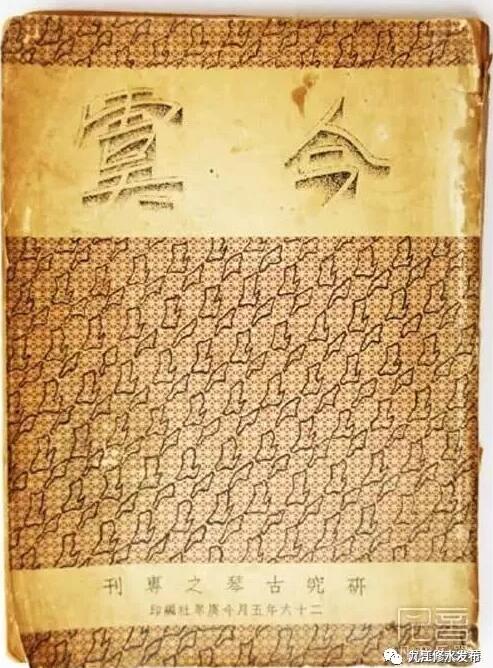 今虞
研究古琴之專刊
二十六年五月今虞琴社編印
九江修水发布